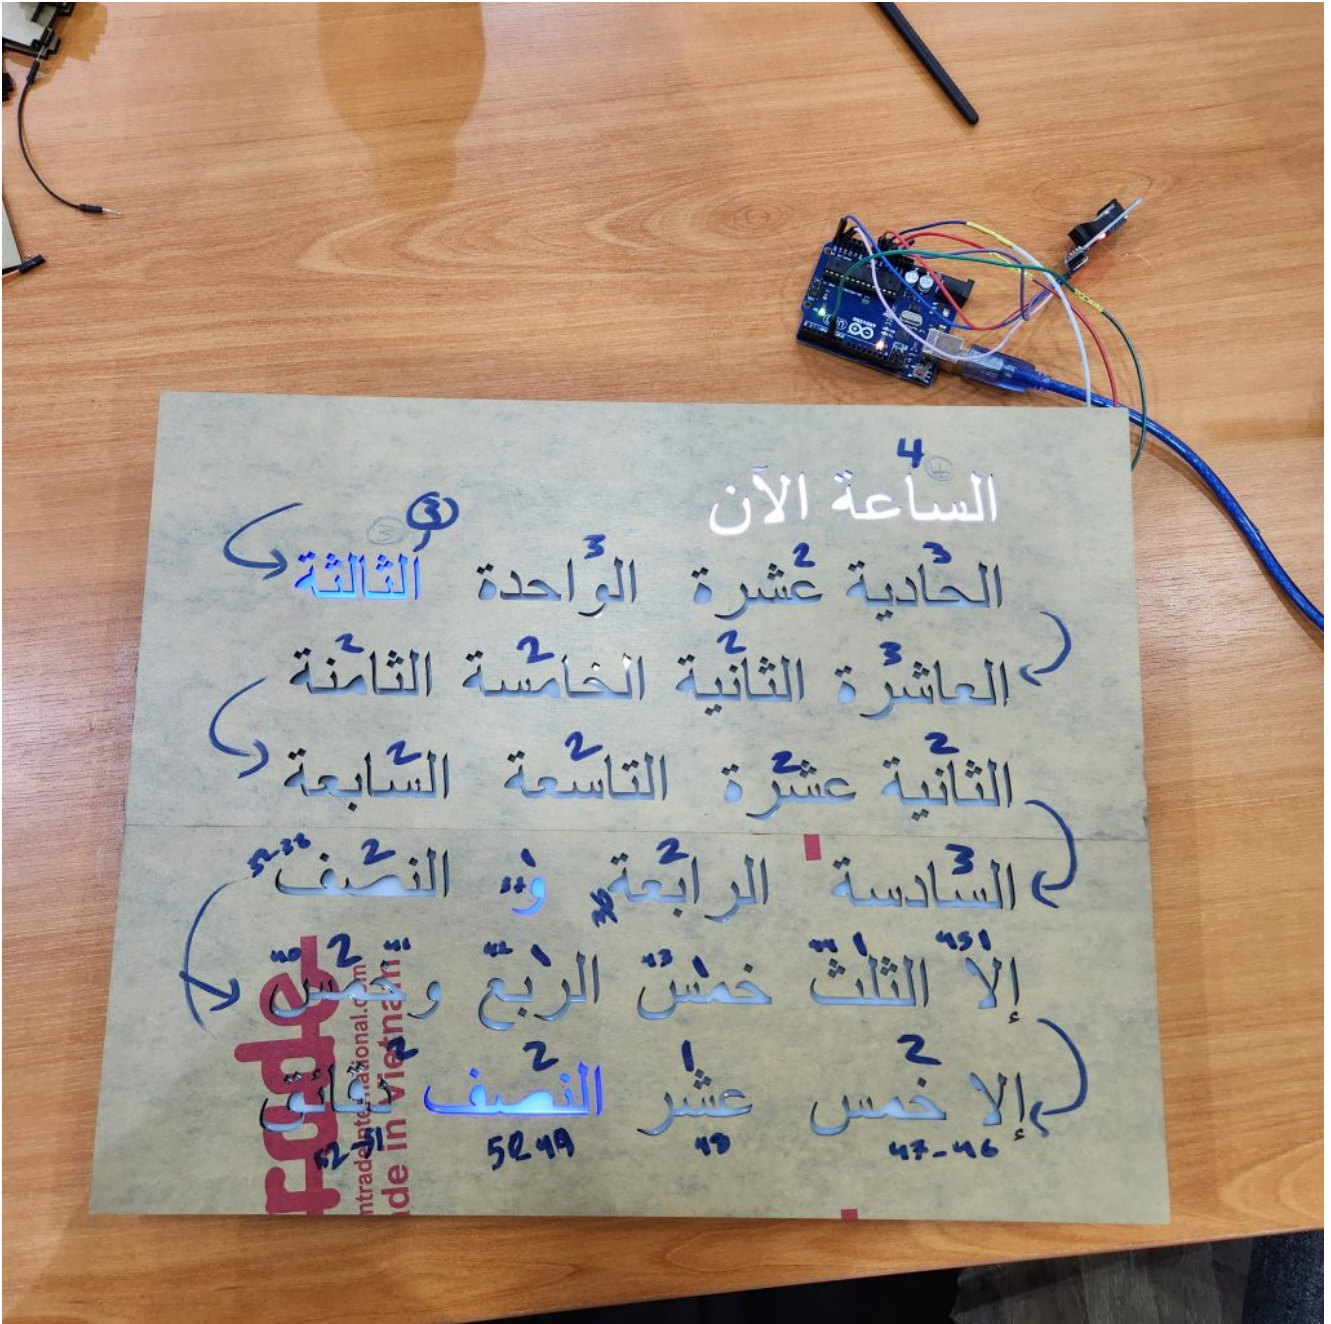 4
الساعة الآن
3 2 3 3
الحادية عشرة الواحدة الثالثة
3 2 2 2
العاشرة الثانية الخامسة الثامنة
2 2 2 2
الثانية عشرة التاسعة السابعة
3 2 1 2
السادسة الرابعة و النصف
36 37
451 44 1 43 1 42 1 41 2 40
إلا الثلث خمس الربع و خمس
2 1 2 2
إلا خمس عشر النصف دقائق
47-46 48 50-49 52-51
ntradeinternational.com
de in vietnam